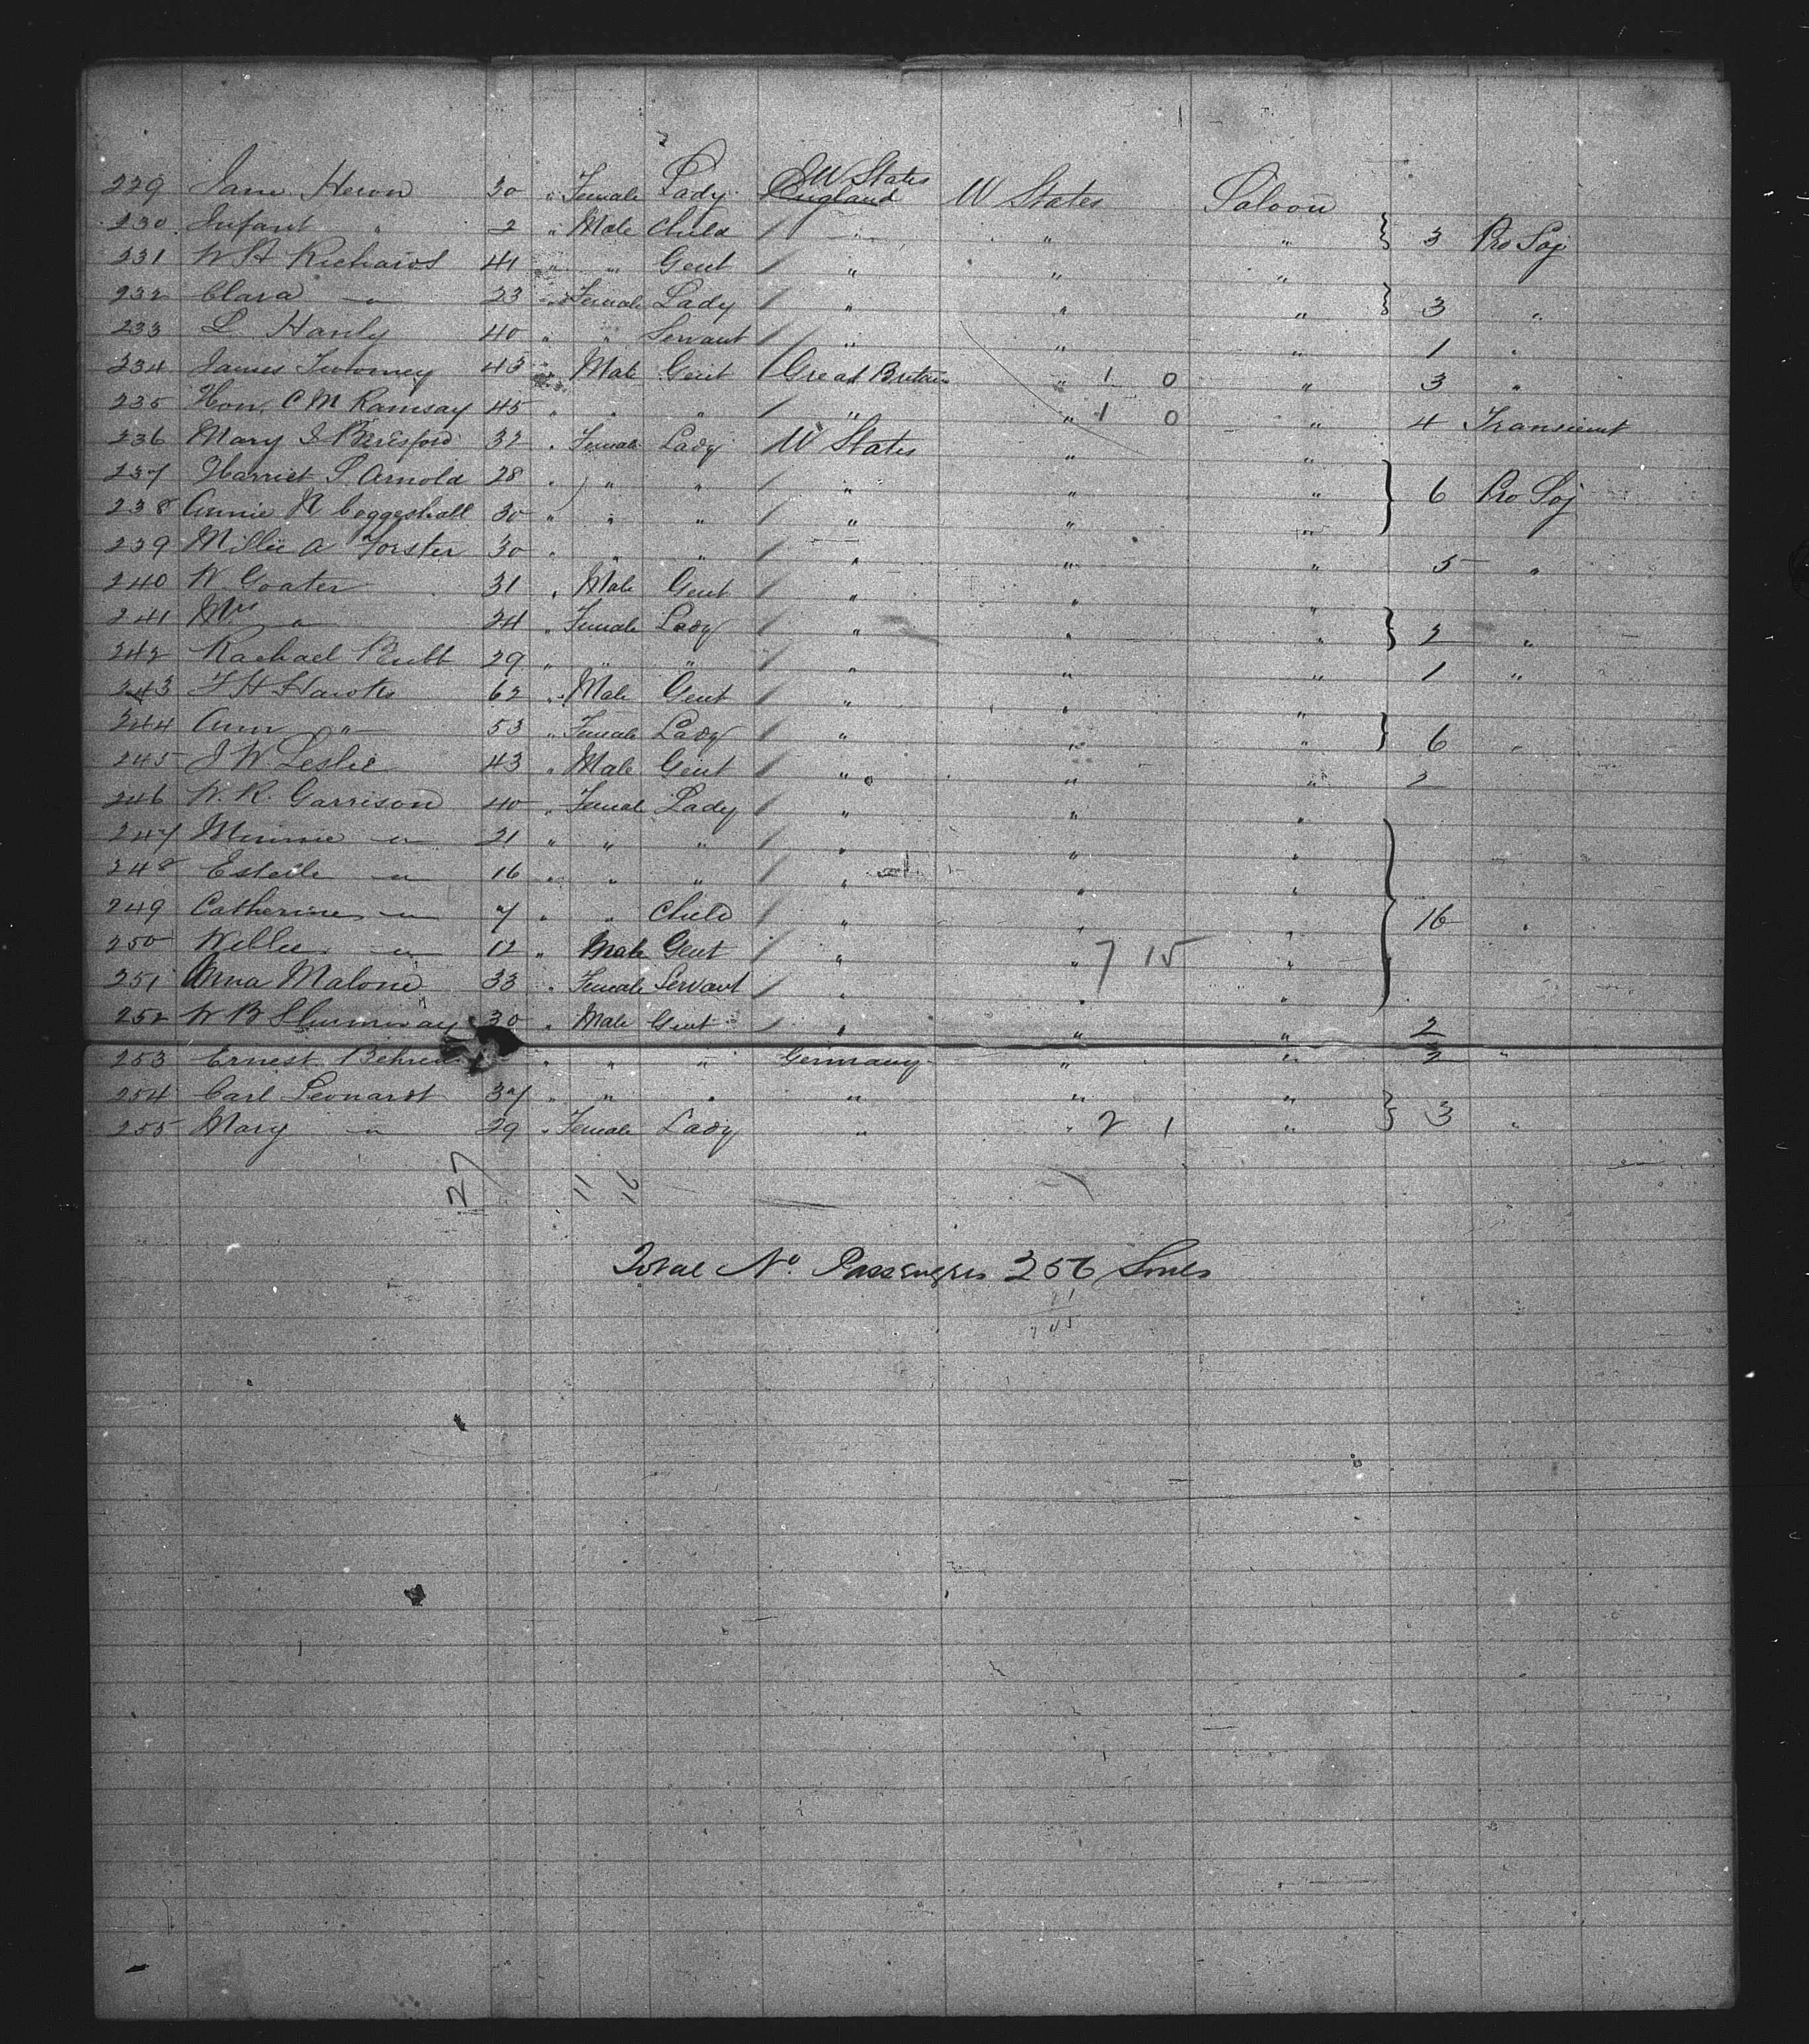 229 Jane Heron 30 " Female Lady U States England U States Saloon
230. Infant " 2 " Male Child / " " " } 3 Pro Soj
231 W H Richards 41 " " " Gent / " " "
232 Clara " 23 " Female Lady / " " " } 3 "
233 L Hanly 40 " " Servant / " " " 1 "
234 James Twomey 45 " Male Gent / Great Britain " 1 0 " 3 "
235 Hon. C M Ramsay 45 " " " / " " 1 0 " 4 Transient
236 Mary I Beresford 32 " Female Lady U States " "
237 Harriet S Arnold 28 " " " / " " " } 6 Pro Soj
238 Annie N Coggeshall 30 " " " / " " "
239 Millie A Forster 30 " " " / " " " 5 "
240 W Goater 31 " Male Gent / " " "
241 Mrs " 24 " Female Lady / " " " } 2 "
242 Rachael Butt 29 " " " / " " " 1 "
243 F H Hawks 62 " Male Gent / " " "
244 Ann " 53 " Female Lady / " " " } 6 "
245 J W Leslie 43 " Male Gent / " " " 2
246 W. R. Garrison 40 " Female Lady / " " "
247 Minnie " 21 " " " / " " "
248 Estelle " 16 " " " / " " "
249 Catherine " 7 " " Child / " " " } 16 "
250 Willie " 12 " Male Gent / " " 7 15 "
251 Anna Malone 33 " Female Servant / " " "
252 W B Shumway 30 " Male Gent / " " " 2
253 Ernest " " " Germany " " 2 "
254 Carl Leonardt 37 " " " " " "
255 Mary " 29 " Female Lady " " 2 1 " } 3 "
27 11 16
Total No. Passengers 256 Souls